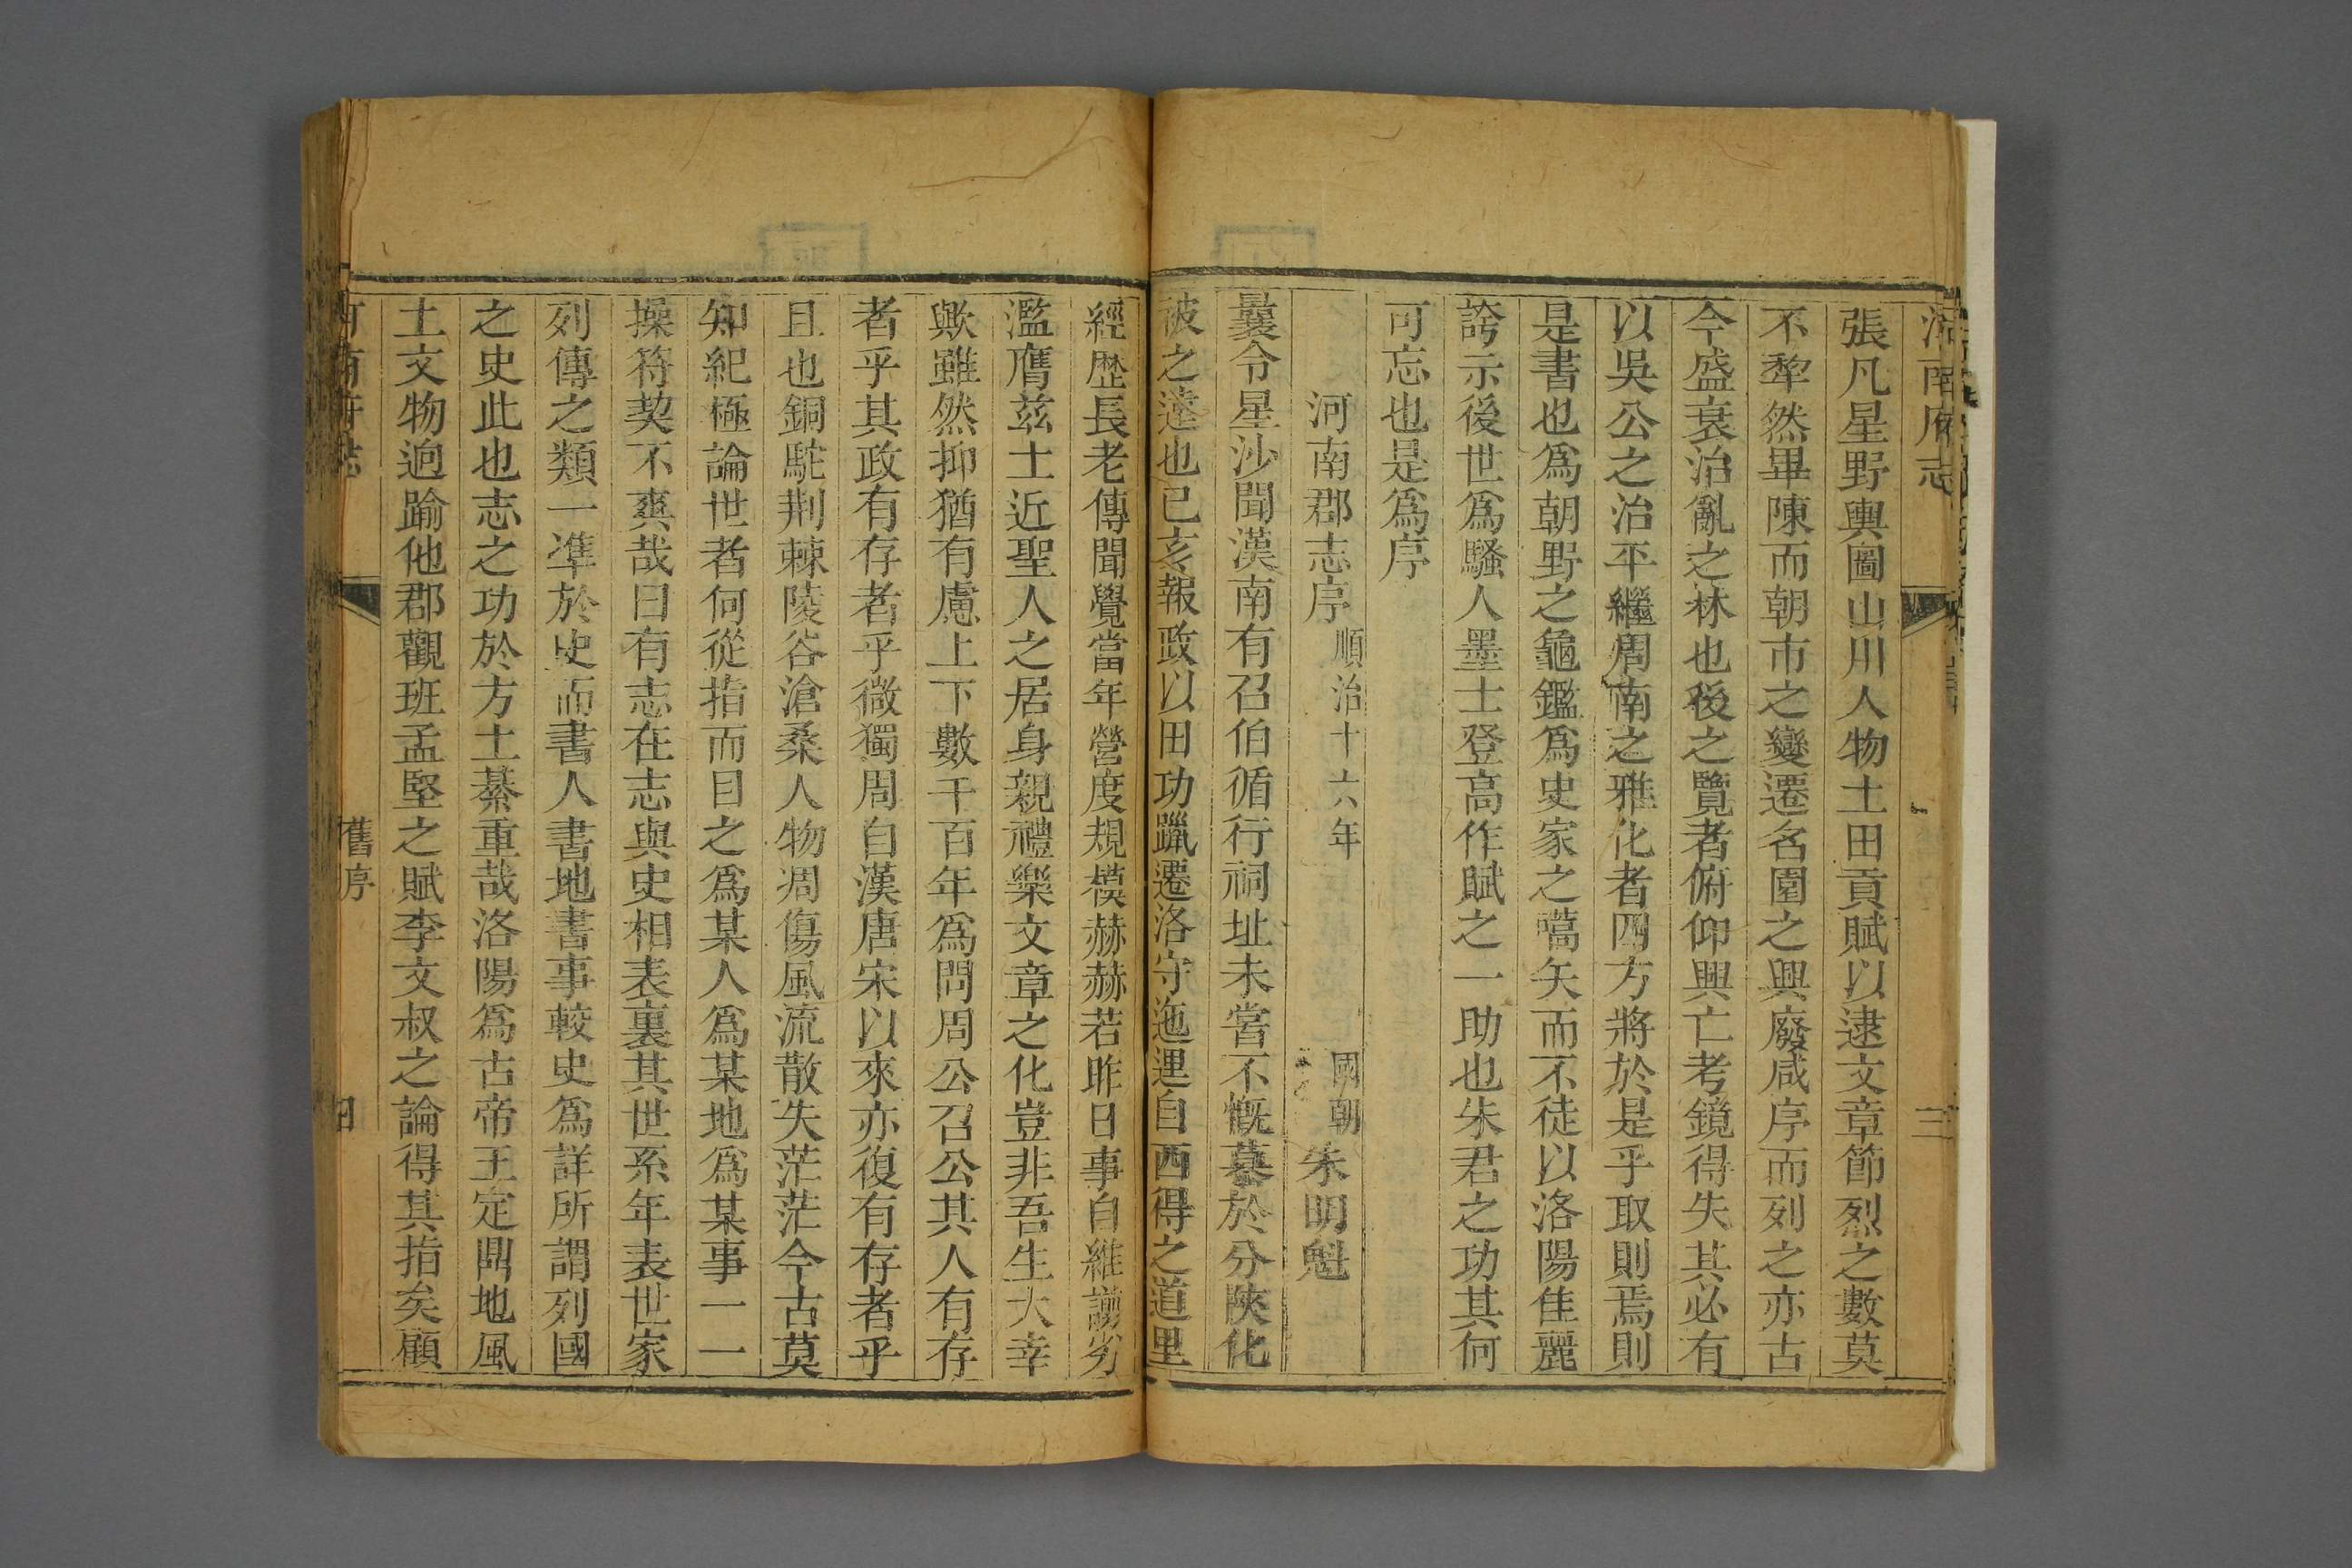 河南府志 三
張凡星野輿圖山川人物土田貢賦以逮文章節烈之數莫
不犂然畢陳而朝市之變遷名園之興廢咸序而列之亦古
今盛衰治亂之林也後之覽者俯仰興亡考鏡得失其必有
以吳公之治平繼周南之雅化者四方將於是乎取則焉則
是書也爲朝野之龜鑑爲史家之嚆矢而不徒以洛陽佳麗
誇示後世爲騷人墨士登高作賦之一助也朱君之功其何
可忘也是爲序
河南郡志序 順治十六年 國朝 朱明魁
曩令星沙聞漢南有召伯循行祠址未嘗不慨慕於分陝化
被之遠也已亥報政以田功躐遷洛守迤逦自西得之道里
經歷長老傳聞覺當年營度規模赫赫若昨日事自維謭劣
濫膺茲土近聖人之居身親禮樂文章之化豈非吾生大幸
歟雖然抑猶有慮上下數千百年爲問周公召公其人有存
者乎其政有存者乎微獨周自漢唐宋以來亦復有存者乎
且也銅駝荆棘陵谷滄桑人物凋傷風流散失茫茫今古莫
知紀極論世者何從指而目之爲某人爲某地爲某事一一
操符契不爽哉曰有志在志與史相表裏其世系年表世家
列傳之類一準於史而書人書地書事較史爲詳所謂列國
之史此也志之功於方土綦重哉洛陽爲古帝王定鼎地風
土文物逈踰他郡觀班孟堅之賦李文叔之論得其指矣顧
河南府志 舊序 四